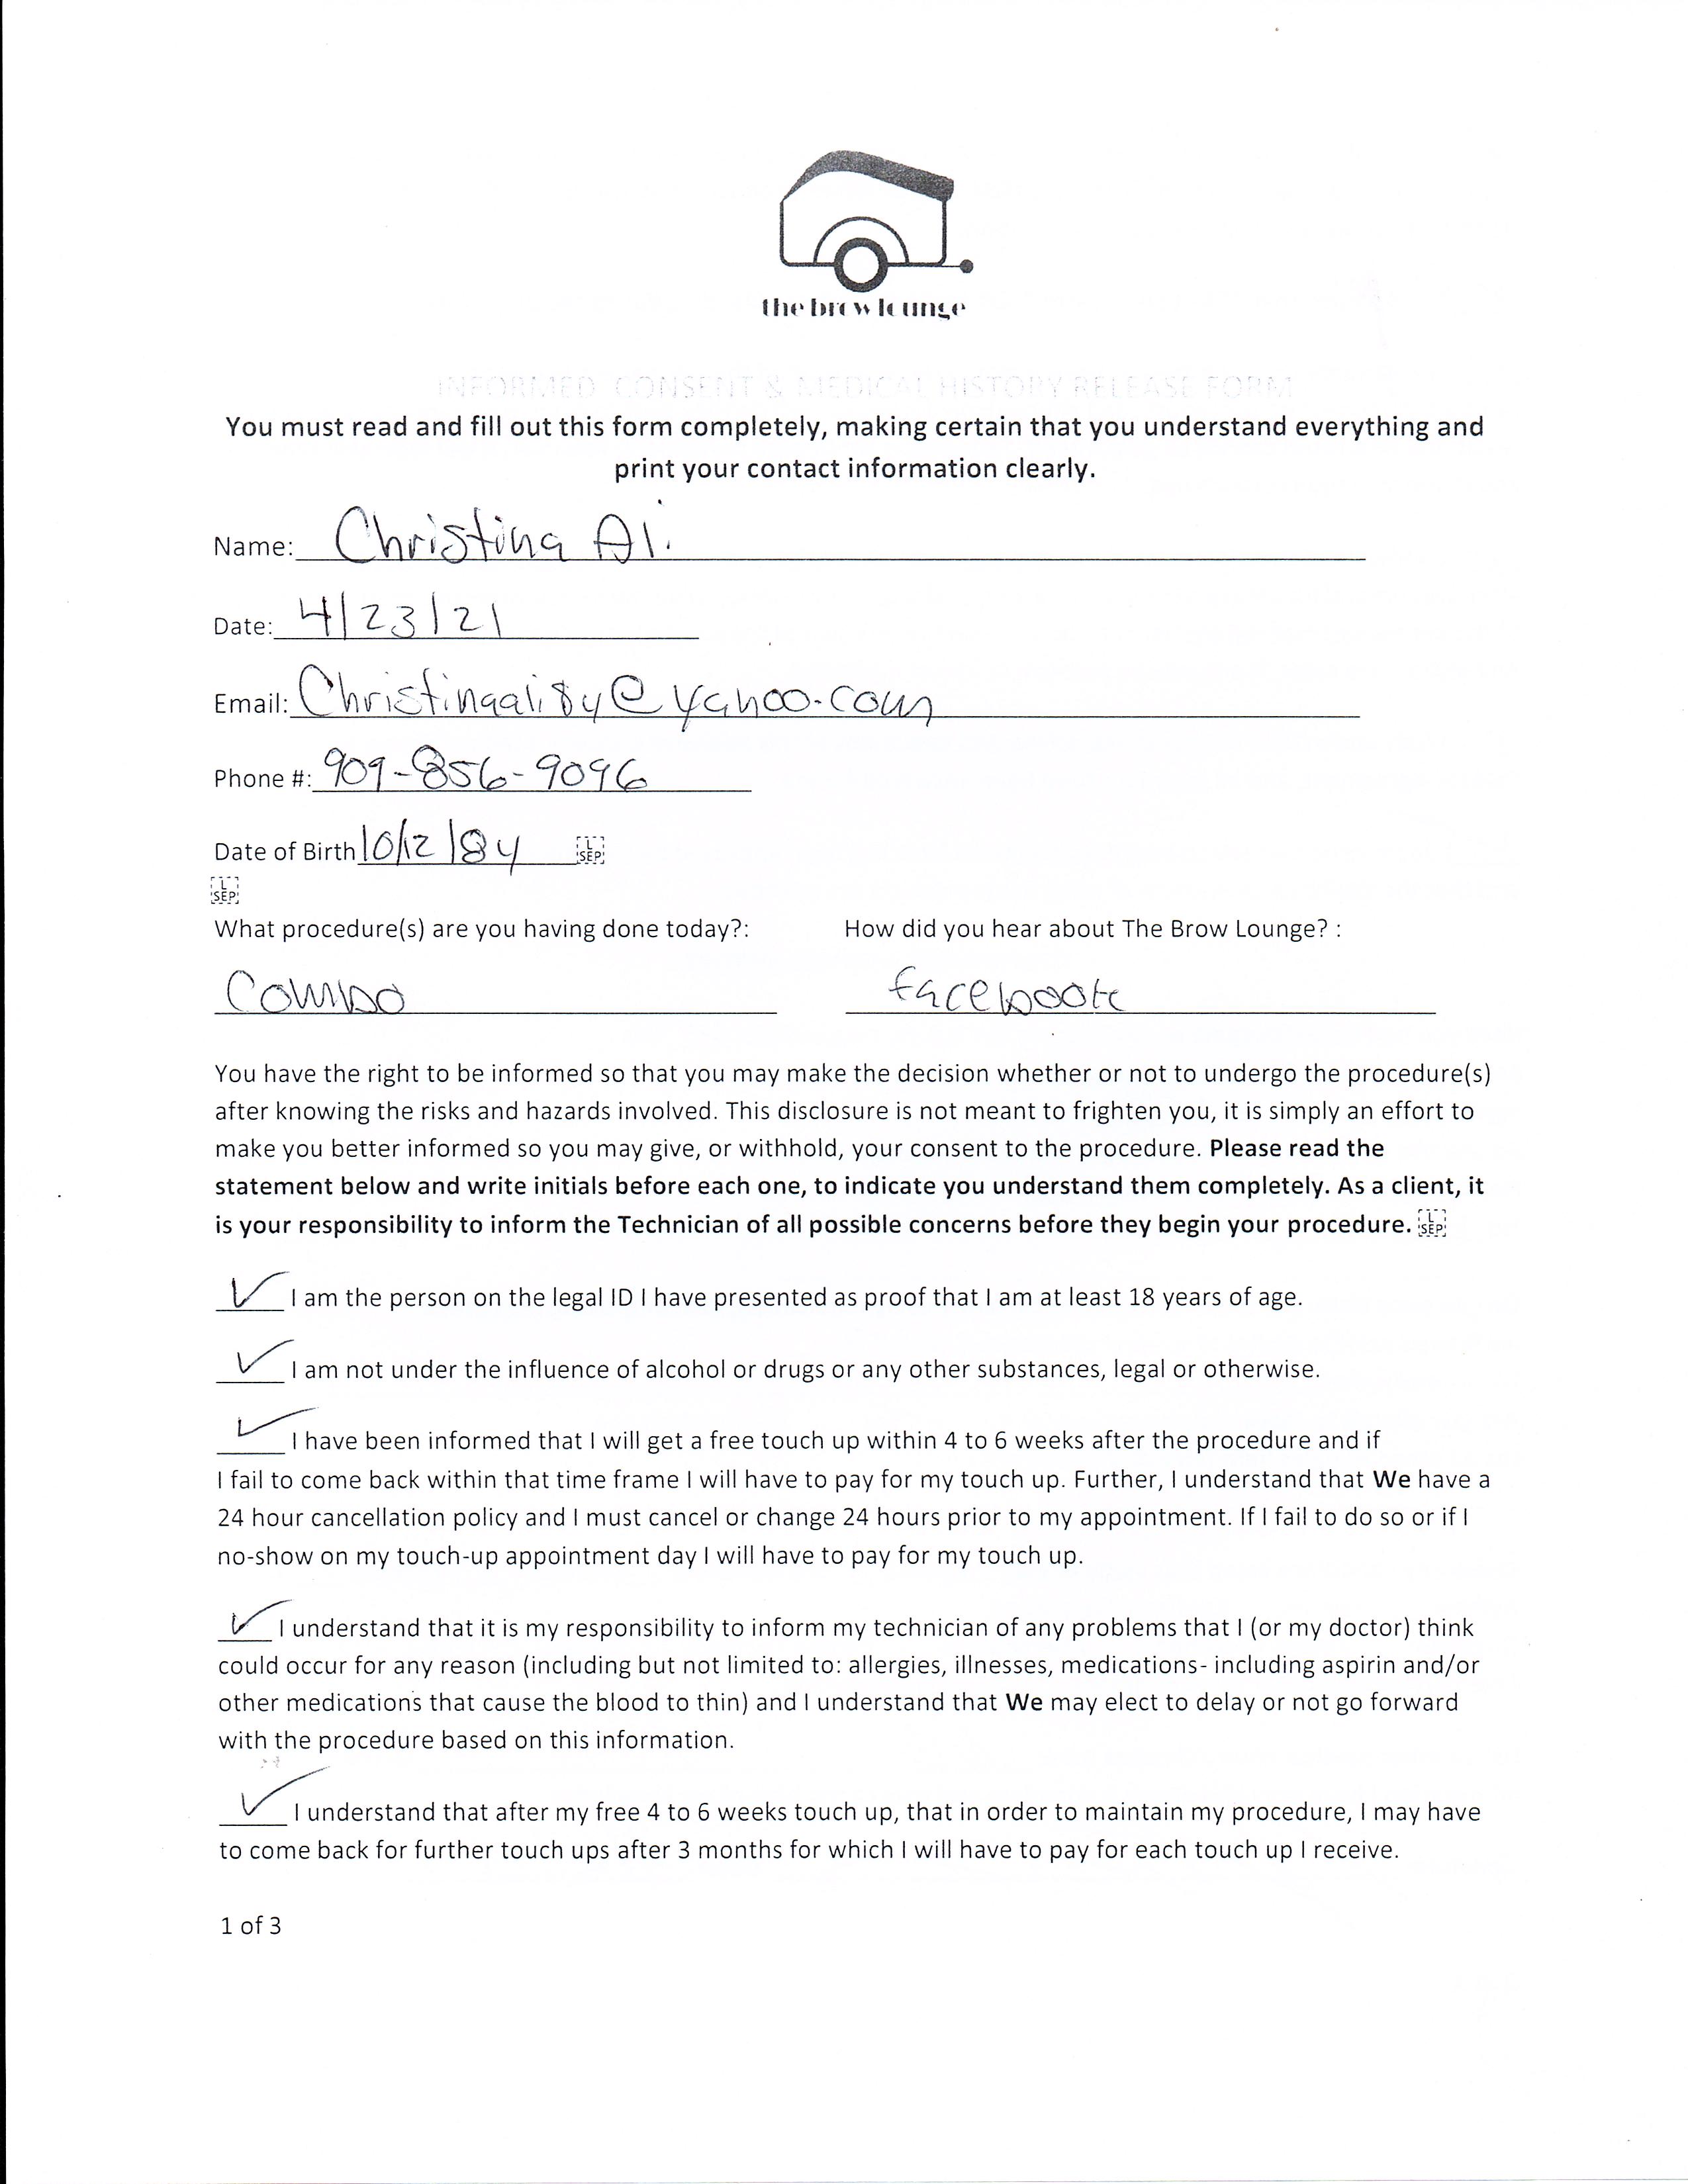 the brow lounge
INFORMED CONSENT & MEDICAL HISTORY RELEASE FORM
You must read and fill out this form completely, making certain that you understand everything and
print your contact information clearly.
Name: Christina Ali
Date: 4/23/21
Email: Christinaali84@yahoo.com
Phone #: 909-856-9096
Date of Birth 10/12/84 L SEP
L SEP
What procedure(s) are you having done today?: How did you hear about The Brow Lounge? :
Combo facebook
You have the right to be informed so that you may make the decision whether or not to undergo the procedure(s)
after knowing the risks and hazards involved. This disclosure is not meant to frighten you, it is simply an effort to
make you better informed so you may give, or withhold, your consent to the procedure. Please read the
statement below and write initials before each one, to indicate you understand them completely. As a client, it
is your responsibility to inform the Technician of all possible concerns before they begin your procedure. L SEP
✓ I am the person on the legal ID I have presented as proof that I am at least 18 years of age.
✓ I am not under the influence of alcohol or drugs or any other substances, legal or otherwise.
✓ I have been informed that I will get a free touch up within 4 to 6 weeks after the procedure and if
I fail to come back within that time frame I will have to pay for my touch up. Further, I understand that We have a
24 hour cancellation policy and I must cancel or change 24 hours prior to my appointment. If I fail to do so or if I
no-show on my touch-up appointment day I will have to pay for my touch up.
✓ I understand that it is my responsibility to inform my technician of any problems that I (or my doctor) think
could occur for any reason (including but not limited to: allergies, illnesses, medications- including aspirin and/or
other medications that cause the blood to thin) and I understand that We may elect to delay or not go forward
with the procedure based on this information.
✓ I understand that after my free 4 to 6 weeks touch up, that in order to maintain my procedure, I may have
to come back for further touch ups after 3 months for which I will have to pay for each touch up I receive.
1 of 3